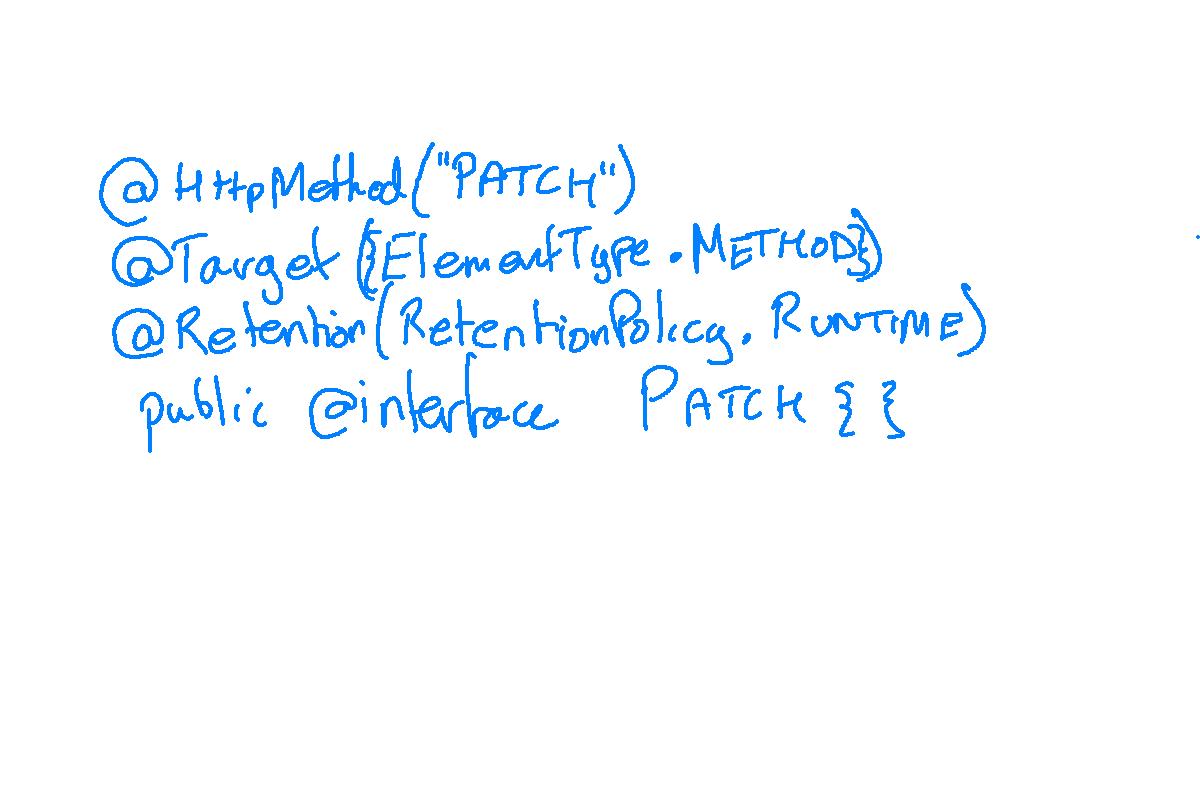 @HttpMethod("PATCH")
@Target({ElementType.METHOD})
@Retention(RetentionPolicy.RUNTIME)
public @interface PATCH { }